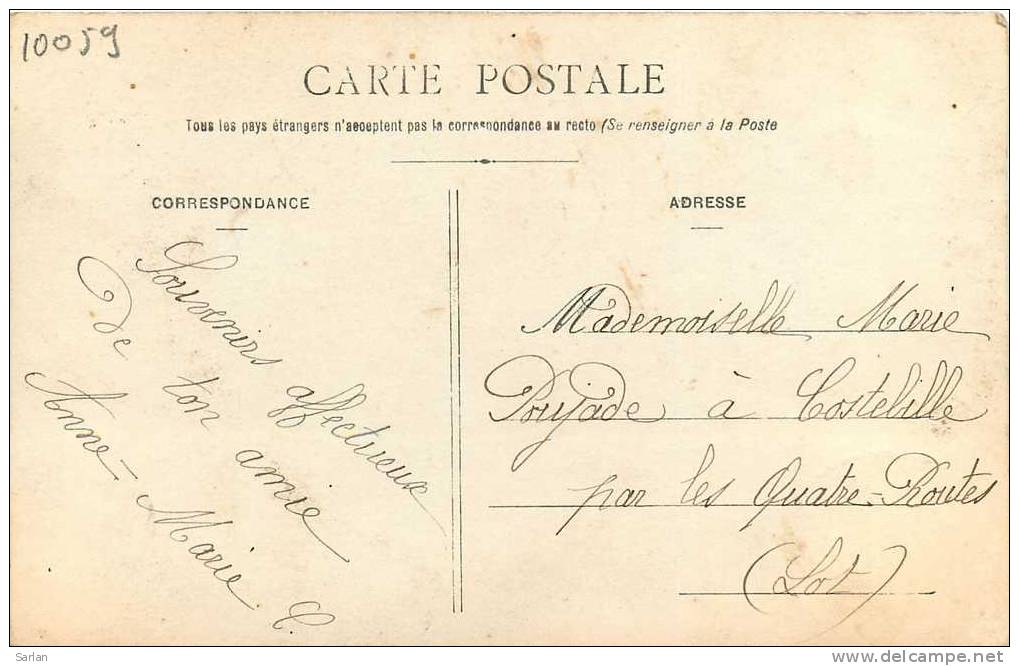 10059
CARTE POSTALE
Tous les pays étrangers n'acceptent pas la correspondance au recto (Se renseigner à la Poste
CORRESPONDANCE
Souvenirs affectueux
De ton amie
Anne-Marie C.
ADRESSE
Mademoiselle Marie
Poujade à Costebille
par les Quatre-Routes
(Lot)
Sarlan
www.delcampe.net